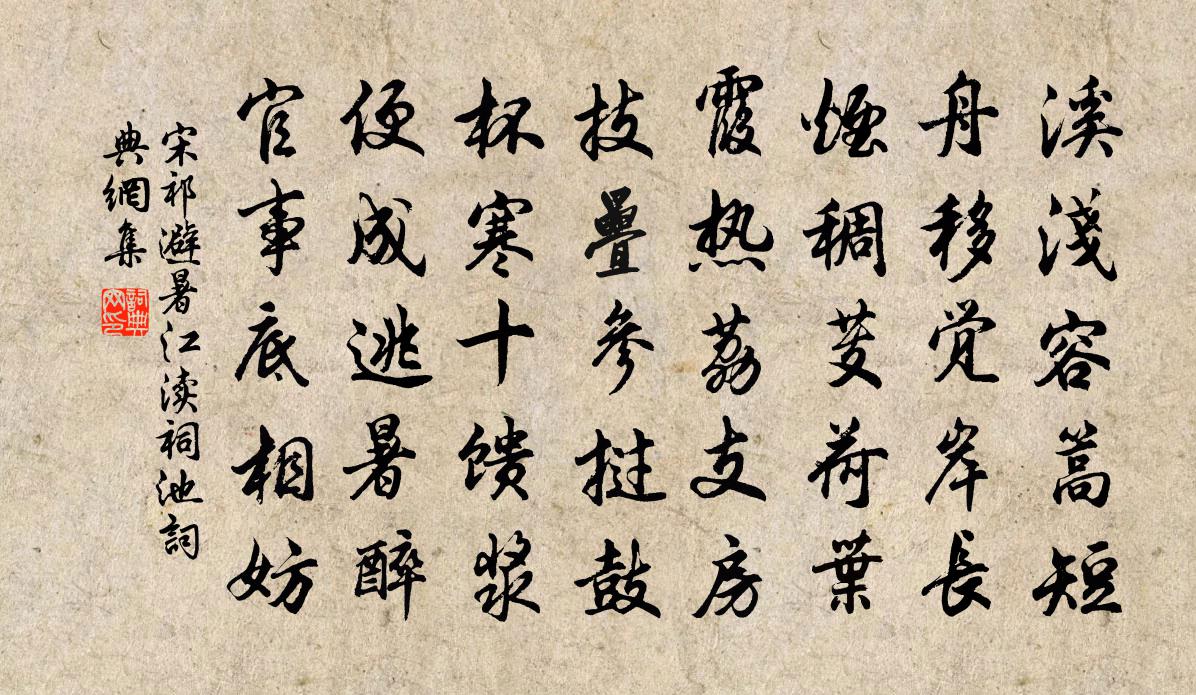 溪淺容篙短
舟移觉岸長
煙稠芰荷葉
霞热荔支房
技疊參撾鼓
杯寒十馈漿
便成逃暑醉
官事底相妨
宋祁避暑江渎祠池詞
典網集
詞典